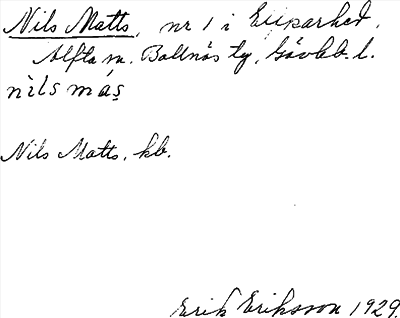 Nils Matts, nr 1 i
Alfta sn. Bollnäs tg, Gävleb. l.
nìls más
Nils Matts, kb.
Erik Eriksson 1929.